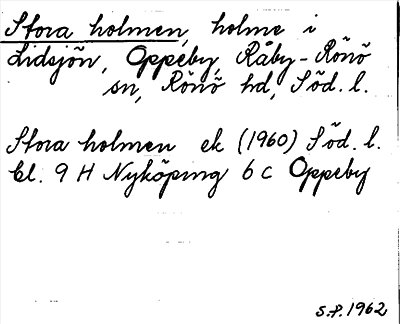 Stora holmen, holme i
Lidsjön, Oppeby, Råby-Rönö
sn, Rönö hd, Söd. l.
Stora holmen ek (1960) Söd. l.
bl. 9 H Nyköping 6 c Oppeby
S.P. 1962